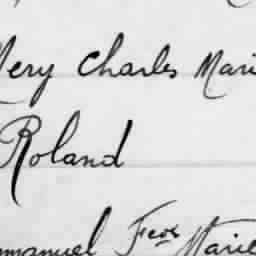 Mery Charles Mari
Roland
mmanuel Feox Marie